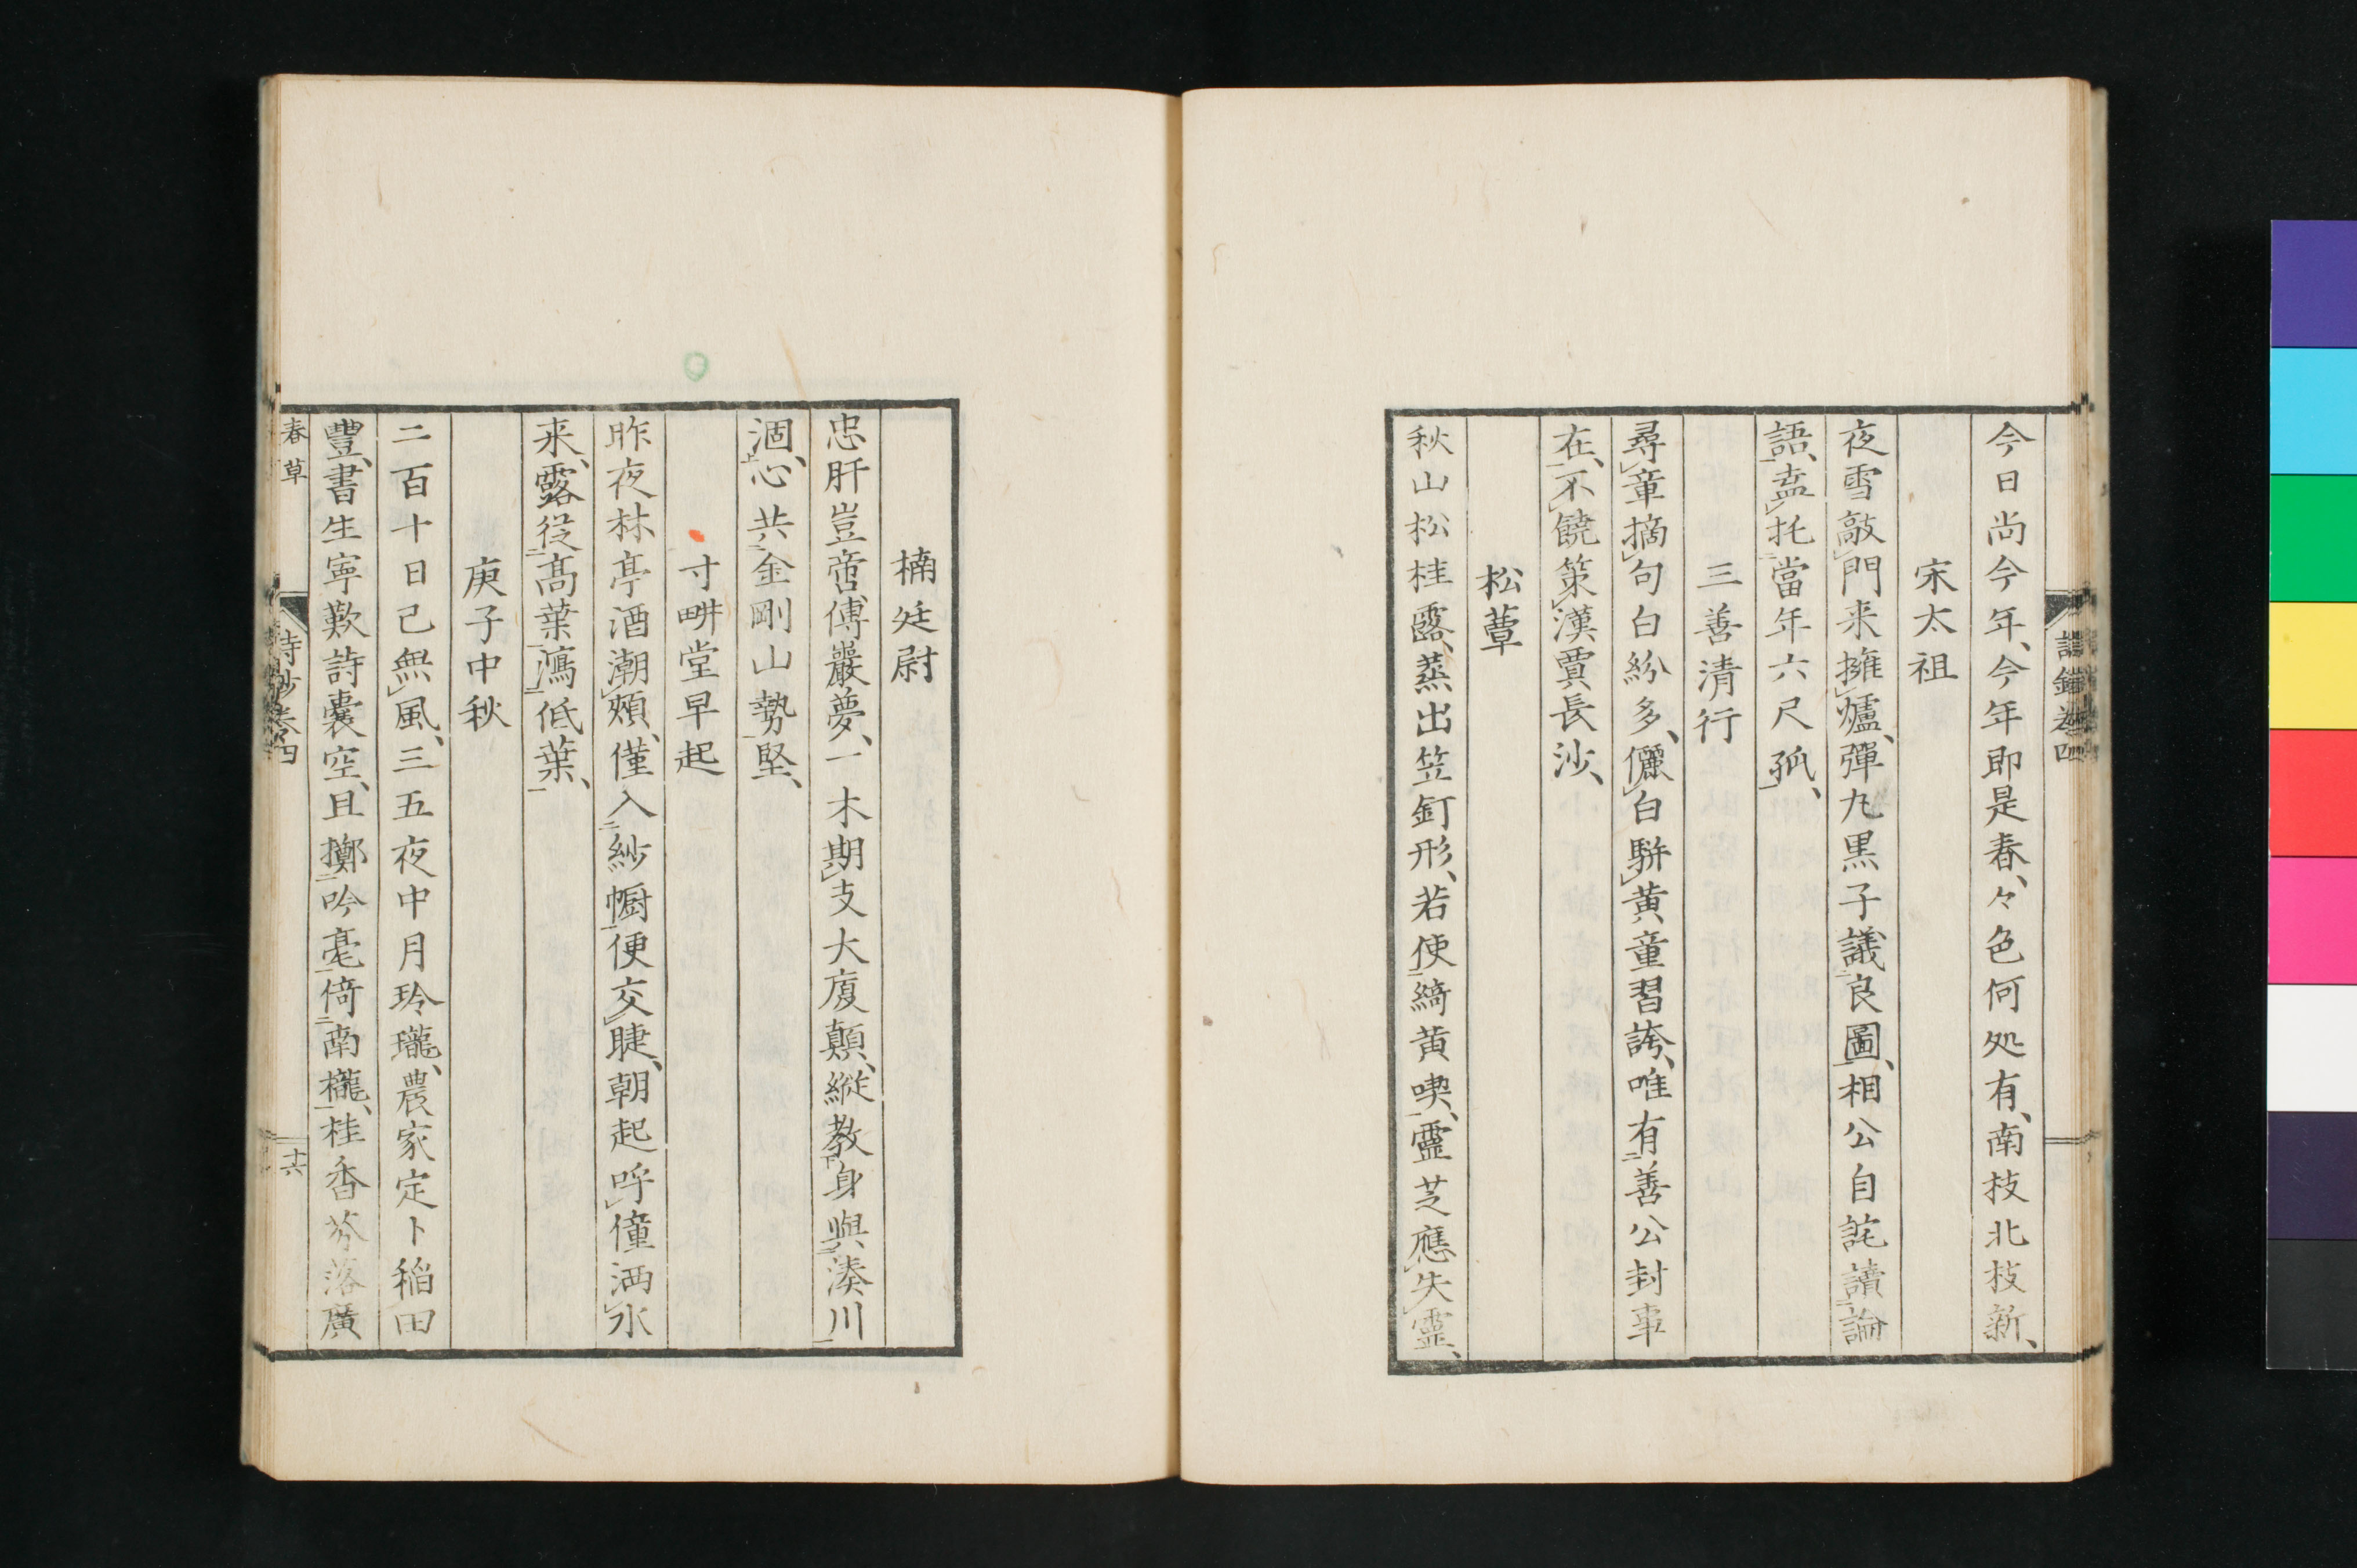 今日尚今年、今年即是春、々色何処有、南枝北枝新、
宋太祖
夜雪敲門来擁爐、彈丸黒子議良圖、相公自詫讀論
語、盍托當年六尺孤、
三善清行
尋章摘句白紛多、儷白駢黄童習誇、唯有善公封事
在、不饒策漢賈長沙、
松蕈
秋山松桂露、蒸出笠釘形、若使綺黄喫、靈芝應失靈、
楠廷尉
忠肝豈啻傅巖夢、一木期支大廈顛、縱教身與湊川
涸、心共金剛山勢堅、
寸畊堂早起
昨夜林亭酒潮頰、僅入紗幮便交睫、朝起呼僮洒水
来、露従髙葉瀉低葉、
庚子中秋
二百十日已無風、三五夜中月玲瓏、農家定卜稲田
豐、書生寧歎詩囊空、且擲吟毫倚南櫳、桂香芬落廣
春草
詩鈔巻四
十六